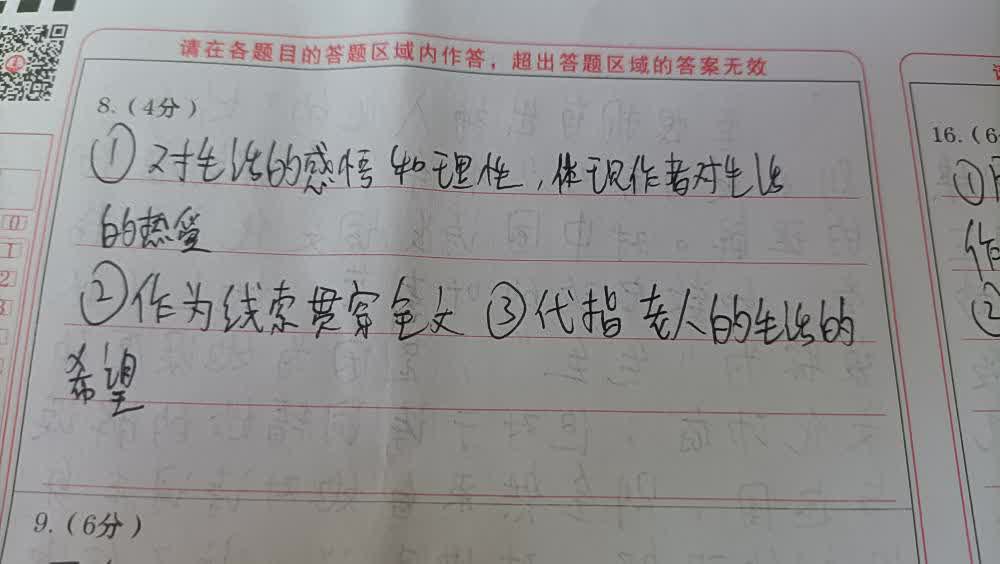 请在各题目的答题区域内作答，超出答题区域的答案无效
8.（4分）
①对生活的感悟和理性，体现作者对生活
的热爱
②作为线索贯穿全文 ③代指老人的生活的
希望
9.（6分）
16.（6
①
作
②
0
1
2
3